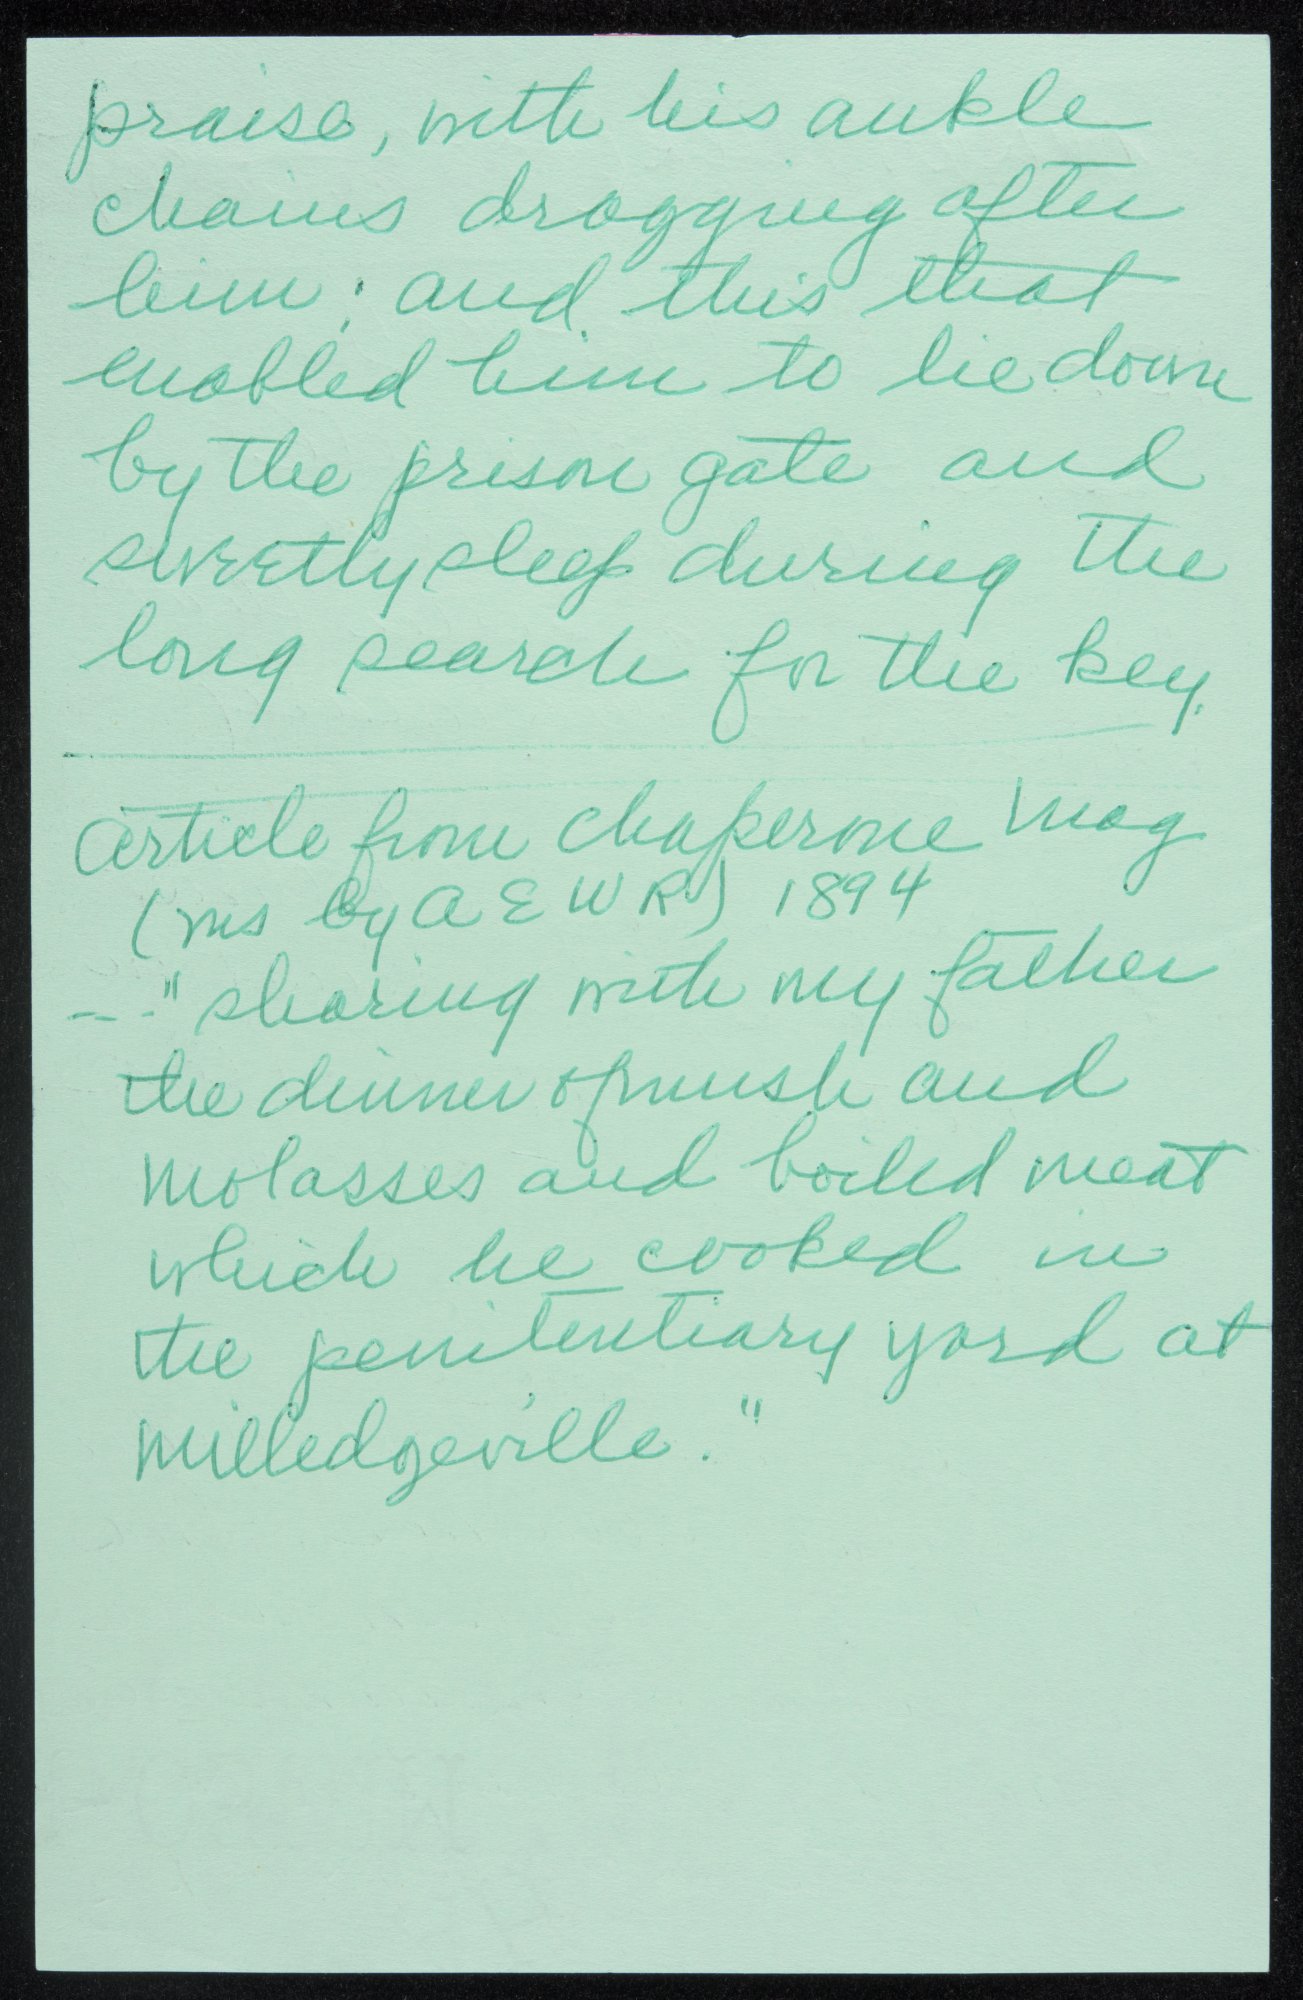 praise, with his ankle
chains dragging after
him; and this that
enabled him to lie down
by the prison gate and
sweetly sleep during the
long search for the key.
Article from Chaperone Mag
(ms by A E W R) 1894
--- "sharing with my father
the dinner of mush and
molasses and boiled meat
which he cooked in
the penitentiary yard at
Milledgeville."